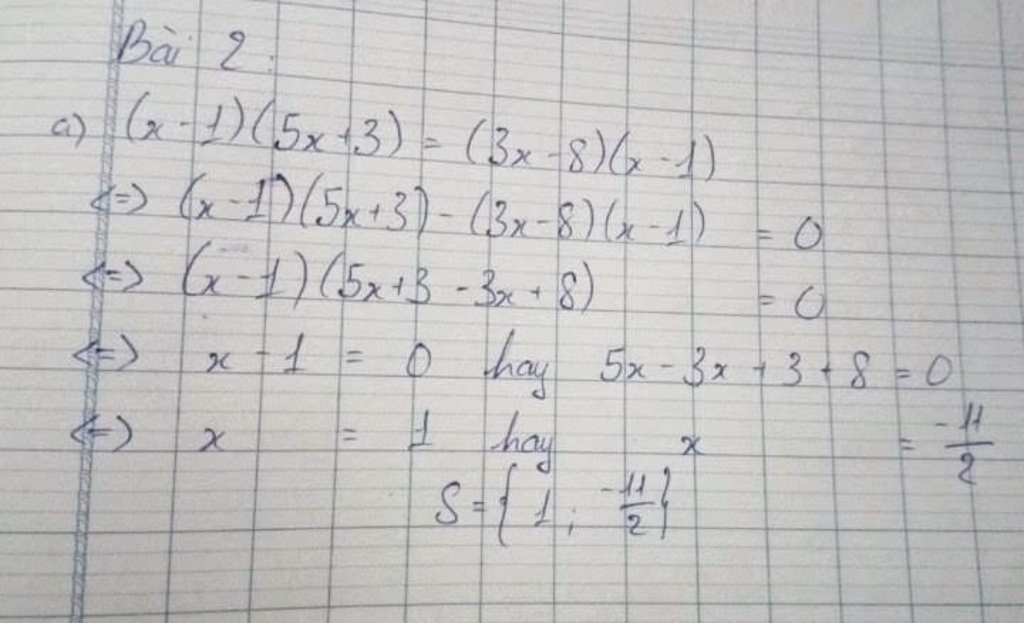 Bài 2:
a) (x-1)(5x+3) = (3x-8)(x-1)
<=> (x-1)(5x+3) - (3x-8)(x-1) = 0
<=> (x-1)(5x+3 - 3x + 8) = 0
<=> x - 1 = 0 hay 5x - 3x + 3 + 8 = 0
<=> x = 1 hay x = -11/2
S = {1; -11/2}